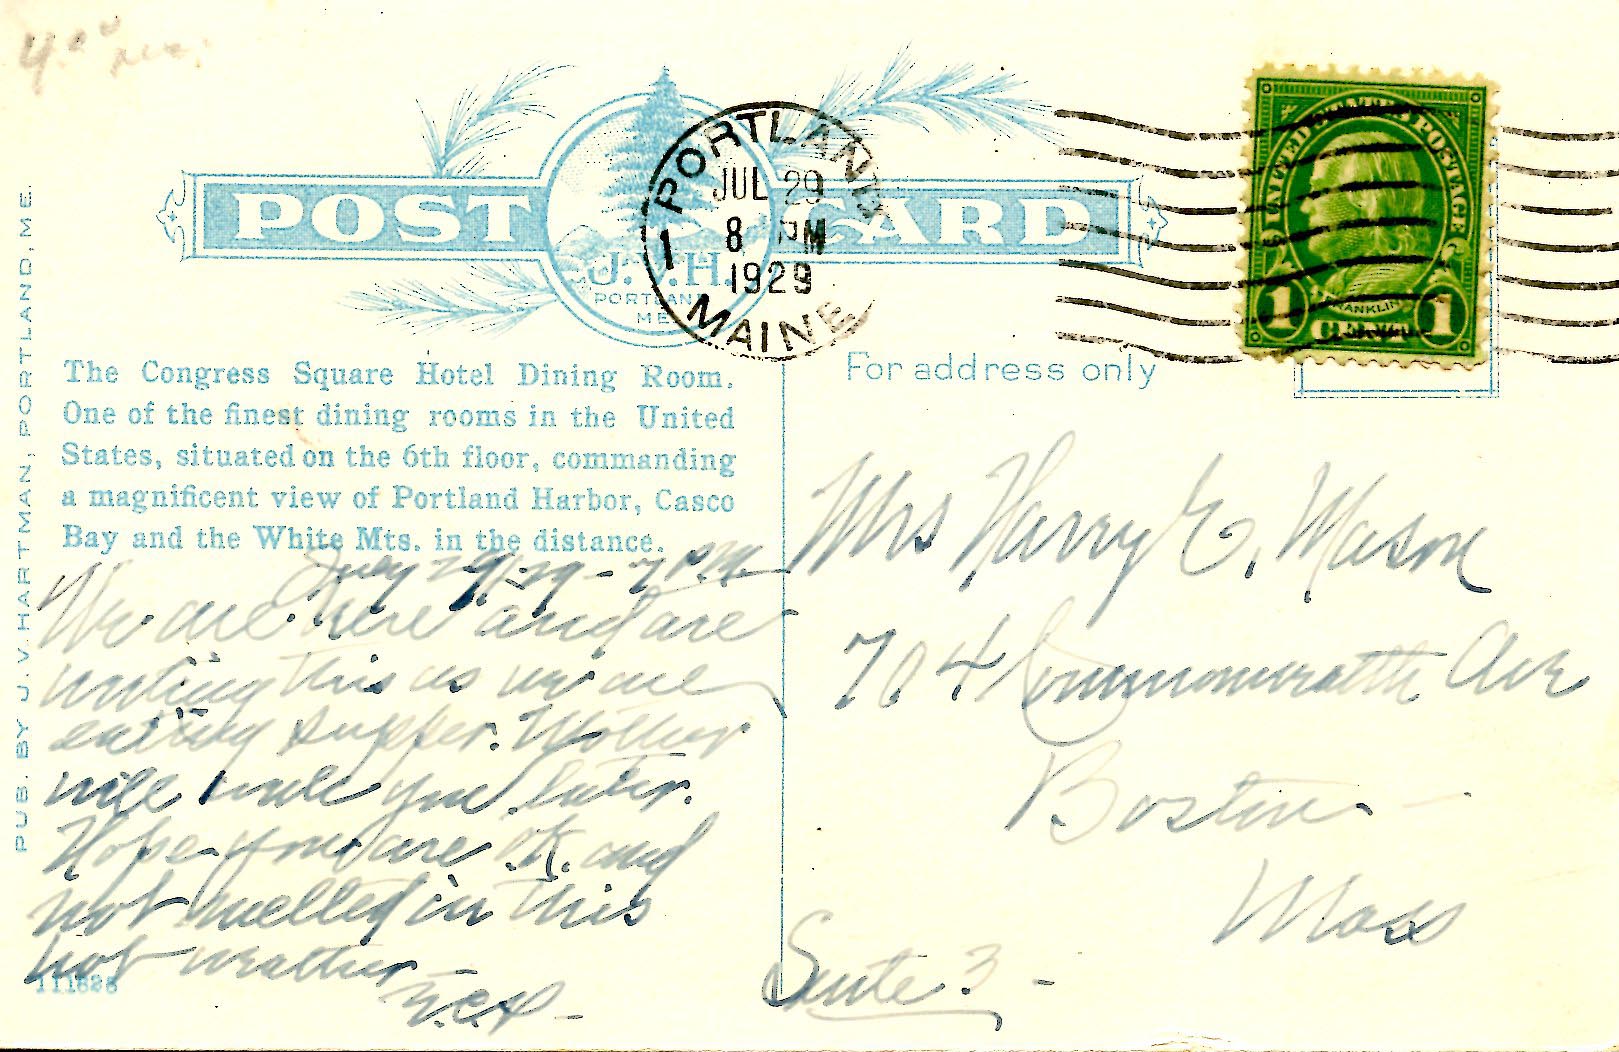 4.00
POST CARD
J. V. H.
PORTLAND
ME
PORTLAND
JUL 29
8 PM
1929
1
MAINE
UNITED STATES POSTAGE
FRANKLIN
1 CENT 1
PUB. BY J. V. HARTMAN, PORTLAND, ME.
The Congress Square Hotel Dining Room.
One of the finest dining rooms in the United
States, situated on the 6th floor, commanding
a magnificent view of Portland Harbor, Casco
Bay and the White Mts. in the distance.
July 29, 29 - 7 P.M.
We are here and are
writing this as we are
eating supper. Mother
will write you later.
Hope you are O.K. and
not melted in this
hot weather -
111628
For address only
Mrs Harry E. Mason
704 Commonwealth Ave
Boston -
Mass
Suite 3 -